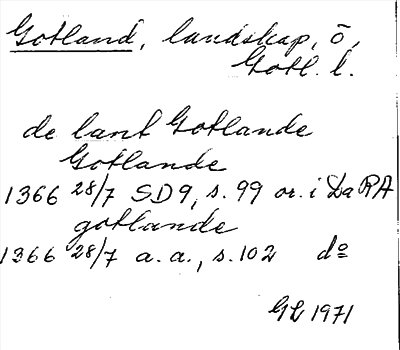 Gotland, landskap, ö,
Gotl. l.
de lant Gotlande
Gotlande
1366 28/7 SD9, s. 99 or. i Da RA
gotlande
1366 28/7 a. a., s. 102 do
GL 1971